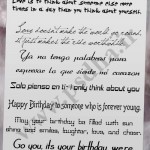 Love is to think about someone else more
times in a day than you think about yourself.
Love doesn't make the world go round,
Love just makes the ride worthwhile.
Ya no tengo palabras para
expresar lo que siente mi corazón
Solo pienso en ti-I only think about you
Happy Birthday to someone who is forever young.
May your birthday be filled with sun
shine and smiles, laughter, love, and cheer.